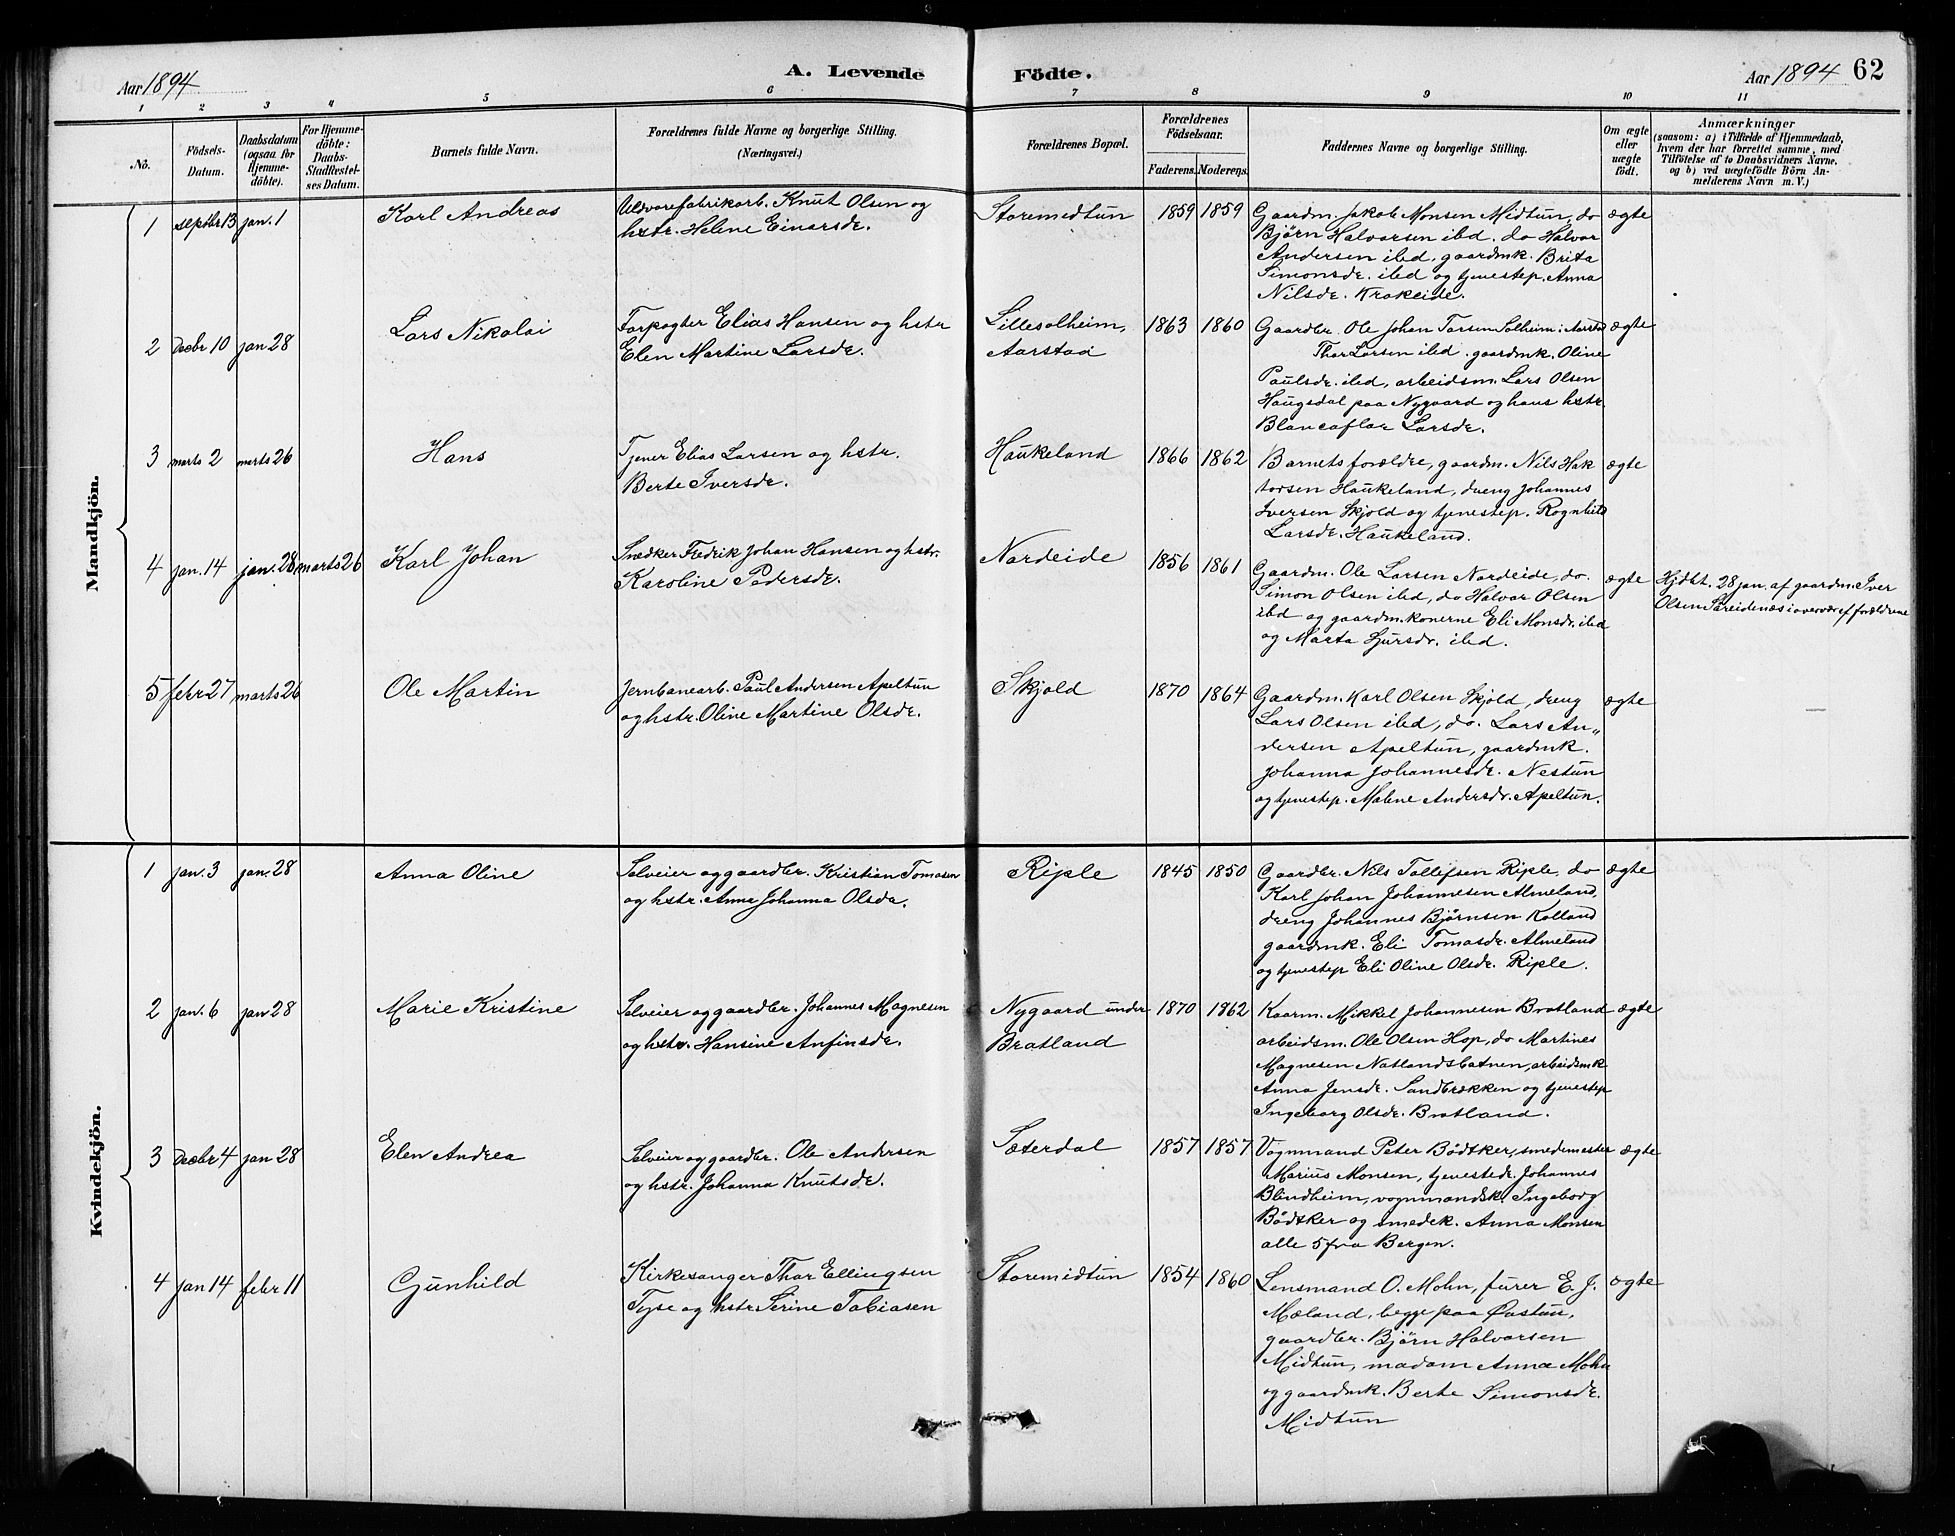 Aar 1894
A. Levende
Födte.
Aar 1894
62
1 2 3 4 5 6 7 8 9 10 11
No.
Födsels-
Datum.
Daabsdatum
(ogsaa for
Hjemme-
döbte).
For Hjemme-
döbte:
Daabs-
Stadfæstel-
ses Datum.
Barnets fulde Navn.
Forældrenes fulde Navne og borgerlige Stilling.
(Næringsvei.)
Forældrenes Bopæl.
Forældrenes
Födselsaar.
Faderens. Moderens.
Faddernes Navne og borgerlige Stilling.
Om ægte
eller
uægte
födt.
Anmærkninger
(saasom: a) i Tilfælde af Hjemmedaab,
hvem der har forrettet samme, med
Tilföielse af to Daabsvidners Navne,
og b) ved uægtefödte Börn An-
melderens Navn m. V.)
Mandkjön.
1 septbr 13 jan. 1
Karl Andreas
Uldvarefabrikarb. Knut Olsen og
hstr. Helene Einarsdr.
Storemidtun 1859 1859
Gaardm. Jakob Monsen Midtun, do
Bjørn Halvorsen ibd. do Halvor
Andersen ibd, gaardmk. Brita
Simonsdr. ibd og tjenestep. Anna
Nilsdr. Krokeide.
ægte
2 Decbr 10 jan 28
Lars Nikolai
Forpagter Elias Hansen og hstr
Elen Martine Larsdr.
Lillesolheim,
Aarstad
1863 1860
Gaardbr. Ole Johan Torsen Solheim i Aarstad
Thor Larsen ibd. gaardmk. Oline
Paulsdr. ibd, arbeidsm. Lars Olsen
Haugsdal paa Nygaard og hans hstr.
Blancaflor Larsdr.
ægte
3 marts 2 marts 26
Hans
Tjener Elias Larsen og hstr.
Berte Iversdr.
Haukeland 1866 1862
Barnets forældre, gaardm. Nils Hak
torsen Haukeland, dreng Johannes
Iversen Skjold og tjenestep. Rognhild
Larsdr. Haukeland.
ægte
4 jan. 14 jan. 28 marts 26
Karl Johan
Snedker Fredrik Johan Hansen og hstr.
Karoline Pedersdr.
Nordeide 1856 1861
Gaardm. Ole Larsen Nordeide, do.
Simon Olsen ibd, do Halvor Olsen
ibd og gaardm.konerne Eli Monsdr. ibd
og Marta Sjursdr. ibd.
ægte
Hjdbt. 28 jan. af gaardm. Iver
Olsen Søreidenæs i overvær af forældrene
5 febr 27 marts 26
Ole Martin
Jernbanearb. Paul Andersen Apeltun
og hstr. Oline Martine Olsdr.
Skjold 1870 1864
Gaardm. Karl Olsen Skjold, dreng
Lars Olsen ibd, do. Lars An„
dersen Apeltun, gaardmk.
Johanna Johannesdr. Nestun
og tjenestep. Malene Andersdr. Apeltun.
ægte
Kvindekjön.
1 jan. 3 jan. 28
Anna Oline
Selveier og gaardbr. Kristian Tomasen
og hstr. Anna Johanna Olsdr.
Riple 1845 1850
Gaardbr. Nils Tollefsen Riple, do
Karl Johan Johannesen Almeland,
dreng Johannes Bjørnsen Kalland
gaardmk. Eli Tomasdr. Almeland
og tjenestep Eli Oline Olsdr. Riple.
ægte
2 jan. 6 jan 28
Marie Kristine
Selveier og gaardbr. Johannes Magnesen
og hstr. Hansine Anfinsdr.
Nygaard under
Bratland
1870 1862
Kaarm. Mikkel Johannesen Bratland
arbeidsm. Ole Olsen Hop, do Martines
Magnesen Natlandsbatnen, arbeidsmk
Anna Jensdr. Sandbrekken og tjenestep
Ingeborg Olsdr. Bratland.
ægte
3 Decbr 4 jan 28
Elen Andrea
Selveier og gaardbr. Ole Andersen
og hstr. Johanna Knutsdr.
Sæterdal 1857 1857
Vognmand Peter Bödtker, smedemester
Marius Monsen, tjenestedr. Johannes
Blindheim, vognmandsk. Ingeborg
Bödtker og smedek. Anna Monsen
alle 5 fra Bergen.
ægte
4 jan 14 febr 11
Gunhild
Kirkesanger Thor Ellingsen
Tyse og hstr. Serine Tobiasen
Storemidtun 1854 1860
Lensmand O. Mohn, furer E. J.
Mæland, begge paa Øvstun,
gaardbr. Bjørn Halvorsen
Midtun, madam Anna Mohn
og gaardmk. Berte Simonsdr.
Midtun
ægte